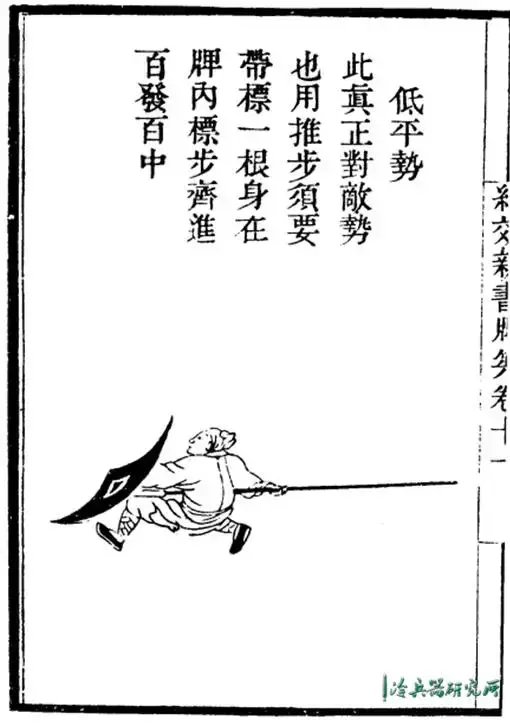 低平勢
此眞正對敵勢
也用推步須要
帶標一根身在
牌内標步齊進
百發百中
紀效新書牌筅卷十一
冷兵器研究所